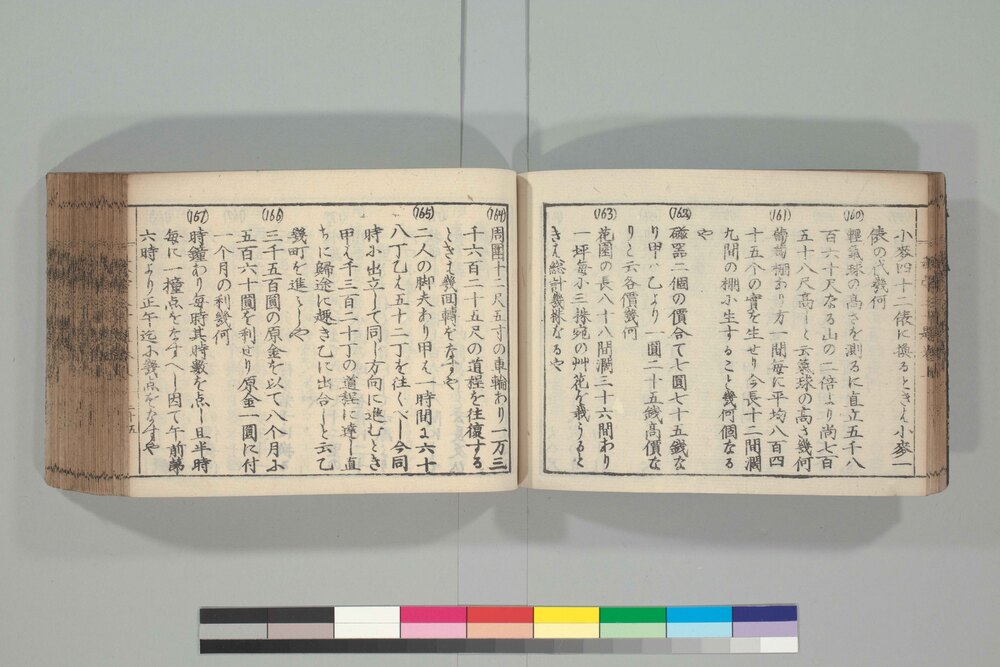 小麥四十二俵に換るときハ小麥一
俵の代幾何
(160)
輕氣球の高さを測るに直立五千八
百六十尺なる山の二倍より尚七百
五十八尺高しと云氣球の高さ幾何
(161)
葡萄棚あり方一間毎に平均八百四
十五个の實を生せり今長十二間濶
九間の棚小生すること幾何個なる
や
(162)
磁器二個の價合て七圓七十五錢な
り甲ハ乙より一圓二十五錢高價な
りと云各價幾何
(163)
花園の長八十八間濶三十六間あり
一坪毎小三株宛の艸花を栽うると
きハ総計幾株なるや
(164)
周圍十二尺五寸の車輪あり一万三
千六百二十五尺の道程を往復する
ときハ幾回轉をなすや
(165)
二人の脚夫あり甲ハ一時間に六十
八丁乙ハ五十二丁を往くべし今同
時小出立して同し方向に進むとき
甲ハ千三百二十丁の道程に達し直
ちに歸途に趣き乙に出合しと云乙
幾町を進しや
(166)
三千五百圓の原金を以て八个月ふ
五百六十圓を利せり原金一圓に付
一个月の利幾何
(167)
時鐘あり毎時其時數を点し且半時
毎に一種点をなすへし因て午前第
六時より正午迄小幾点をなすや